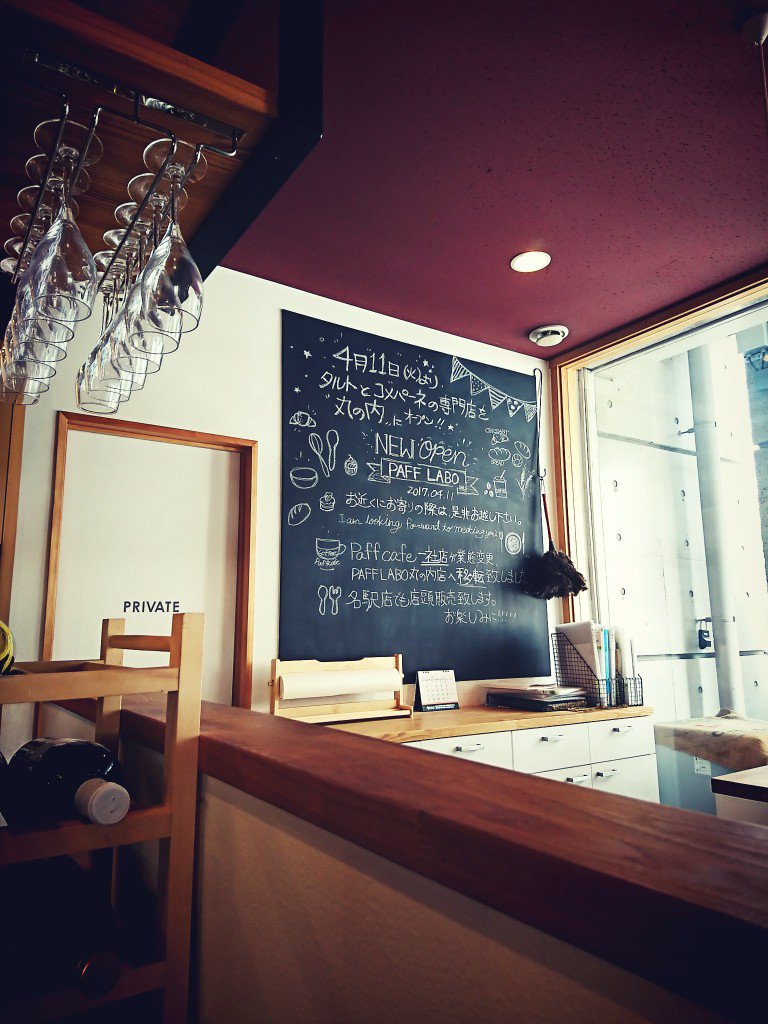 4月11日(火)より
タルトとコメパーネの専門店を
"丸の内"にオープン!!
NEW Open
PAFF LABO
2017.04.11
お近くにお寄りの際は、是非お越し下さい。
I am looking forward to meeting you!
CROISSANT
BREAD
Coffee
Paff cafe
Paff cafe 一社店が業態変更、
PAFF LABO 丸の内店へ移転致しました
名駅店でも店頭販売致します。
お楽しみに!!!!
PRIVATE